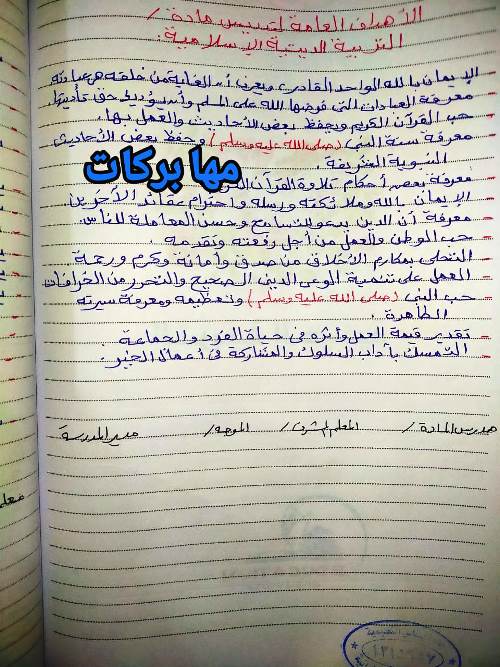 الأهداف العامة لتدريس مادة /
التربية الدينية الإسلامية.
الإيمان بالله الواحد القادر ويعرف أن الغاية من خلقه هي عبادته
- معرفة العبادات التي فرضها الله على المسلم وأن يؤديها حق تأديتها
- حب القرآن الكريم ويحفظ بعض الأحاديث والعمل بها.
- معرفة سنة النبي (صلى الله عليه وسلم) وحفظ بعض الأحاديث
النبوية الشريفة.
مها بركات
- معرفة بعض أحكام تلاوة القرآن
- الإيمان بالله وملائكته ورسله واحترام عقائد الآخرين
- معرفة أن الدين يدعو للتسامح وحسن المعاملة للناس.
- حب الوطن والعمل من أجل رفعته وتقدمه.
- التحلي بمكارم الأخلاق من صدق وأمانة وكرم ورحمة
- العمل على تنمية الوعي الديني الصحيح والتحرر من الخرافات
- حب النبي (صلى الله عليه وسلم) وتعظيمه ومعرفة سيرته
الطاهرة.
- تقدير قيمة العمل وأثره في حياة الفرد والجماعة
- التمسك بآداب السلوك والمشاركة في أعمال الخير.
مدرس المادة / المعلم المشرف / الموجه / مدير المدرسة